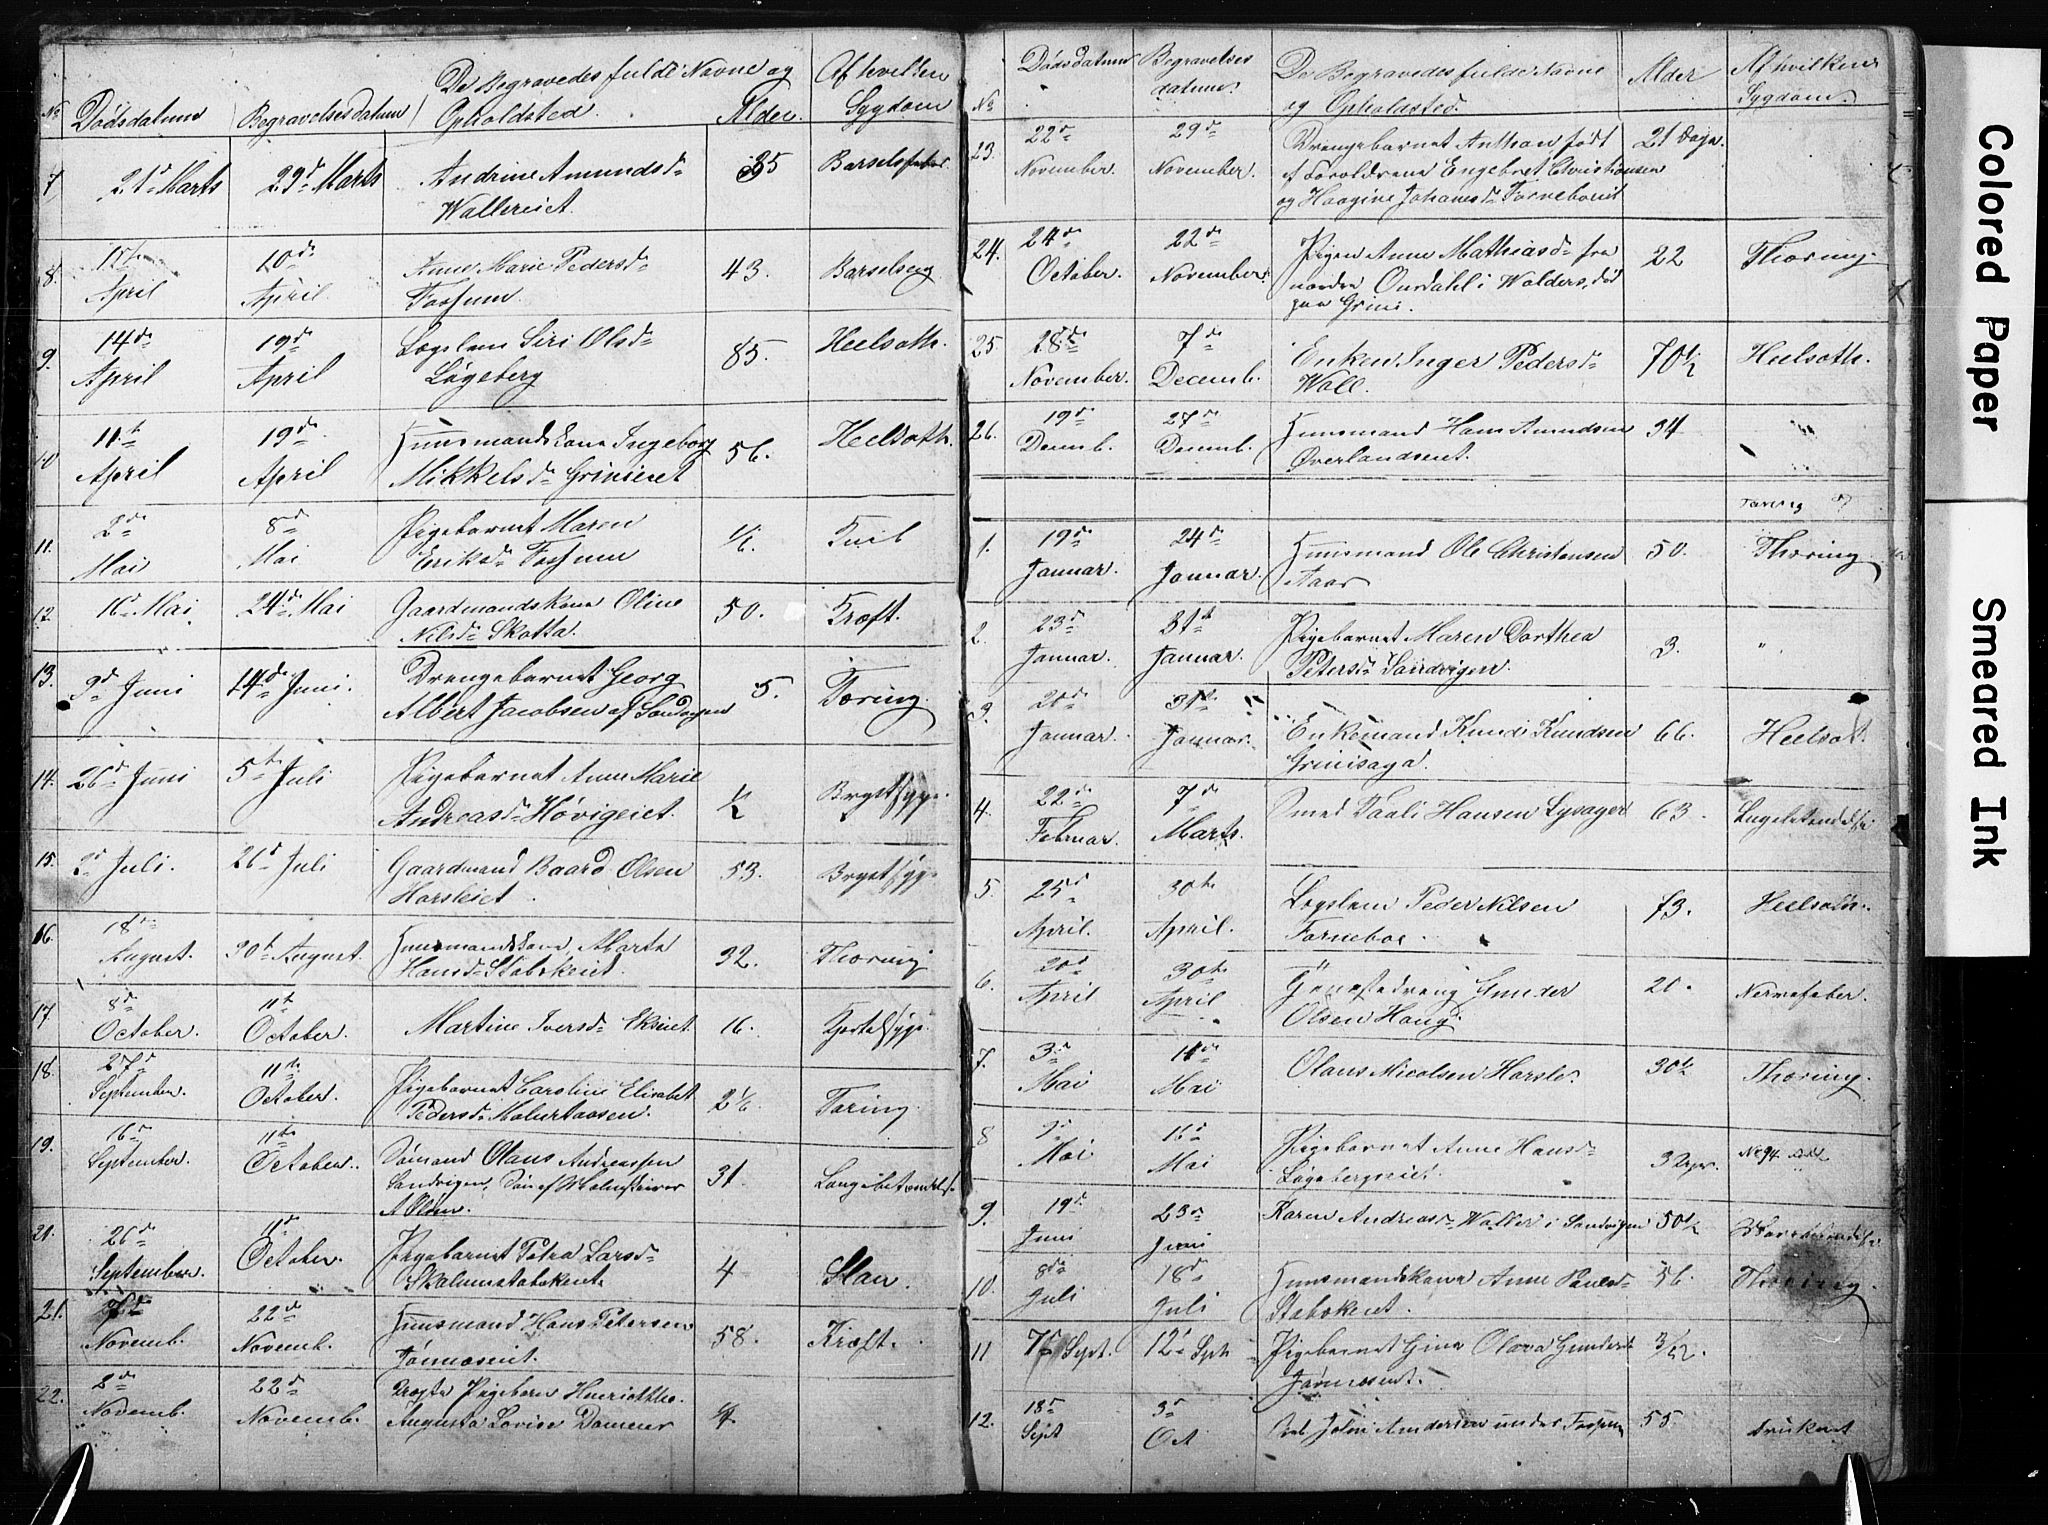 No
Dødsdatum
Begravelsesdatum
De Begravedes fulde Navne og
Opholdsted.
Alder.
Af hvilken
Sygdom
7
21d Marts
29d Marts
Andrine Amundsd
Wallereiet.
35
Barselsfeber
8.
April
10d
April
Anne Marie Pedersd
Fossum.
43.
Barselseng
9.
14d
April
19d
April
Lægslem Siri Olsd
Løgeberg
85.
Heelsoth.
10
11t
April
19d
April
Huusmandskone Ingeborg
Mikkelsd Grinieiet
56.
Heelsoth.
11.
2d
Mai
8d
Mai
Pigebarnet Maren
Eriksd Fossum
12.
16d Mai
24d Mai
Gaardmandskone Oline
Nilsd Skotta.
50.
Kræft.
13.
9d Juni
14d Juni.
Drengebarnet Georg
Albert Jacobsen af Sandvigen
5.
Tæring.
14.
26d Juni
5t Juli
Pigebarnet Anne Marie
Andreasd Høvigeiet.
1/2
Brystsyge.
15.
Juli.
26d Juli
Gaardmand Baard Olsen
Horsleiet.
53.
Brystsyge
16.
18d
August.
30t August.
Huusmandskone Marte
Hansd Stabekeiet.
32.
Thæring
17.
8d
October.
11t
October.
Martine Iversd Ekeiet
16.
Kjertelsyge.
18.
27d
September.
11te
October.
Pigebarnet Caroline Elisabet
Pedersd
2 1/6.
Tæring.
19.
16d
September.
11te
October.
Sømand Olaus Andreassen
Sandvigen, Søn af
A Olsen.
31.
Lungebetændelse
26d
September.
11d
October.
Pigebarnet Petra Larsd
Skallumstabekeiet
4
21.
Novemb.
22d
Novemb.
Huusmand Hans Petersen
Jønnæseiet.
58.
Kræft.
22.
2d
Novemb.
22d
Novemb.
Døgte Pigebarn Henriethe
Augusta Lovise
No
Dødsdatum
Begravelses
datum.
De Begravedes fulde Navne
og Opholdsted.
Alder
Af hvilken
Sygdom.
23.
22d
November.
29d
November.
Drengebarnet Anthon født
af Forældrene Engebret Christiansen
og Haagine Johanesd Fornebоeiet
21 Dage.
24.
24d
October.
22d
November.
Pigen Anne Mathiasd fra
nordre Ourdahl i Walders, død
paa Grini.
22
Thæring.
25.
28d
November.
7d
Decemb.
Enken Inger Pedersd
Wall.
70 1/2
Heelsoth.
26.
19d
Decemb.
27d
Decemb.
Huusmand Hans Amundsen
Øverlandseiet.
34
"
Tæring
1.
19d
Januar.
24d
Januar.
Huusmand Ole Christensen
Aaas
50.
Thæring.
2.
23d
Januar.
31t
Januar.
Pigebarnet Maren Dorthea
Petersd Sandvigen.
3.
"
3.
20d
Januar.
31t
Januar.
Enkemand Knud Knudsen
Grinisaga.
66.
Heelsot.
4.
22d
Februar.
7d
Marts.
Smed Paul Hansen Lysager
63.
Lungebetændelse
5.
25d
April.
30te
April.
Lægslem Peder Nilsen
Forneboe.
73.
Heelsoth.
6.
20d
April
30te
April
Tjenestedreng Gunder
Olsen Haug.
20.
Nervefeber.
7.
3d
Mai
11d
Mai
Olaus Nicolsen Horsle.
30 1/2
Thæring.
8
9d
Mai
16d
Mai
Pigebarnet Anne Hansd
Løgebergseiet.
3 Uger.
9.
19d
Juni
23d
Juni
Karen Andreasd Waller i Sandvigen
50 1/2
10.
8de
Juli
18d
Juli
Huusmandskone Anne Paulsd
Stabekeiet.
56.
Thæring
11
7d Sept.
12d Sept.
Pigebarnet Gina Olava Gundersd
Jønnæseiet.
3/52.
12.
18d
Sept
3d
Oct
John Andersen under Fossum
55
druknet
Colored Paper
Smeared Ink